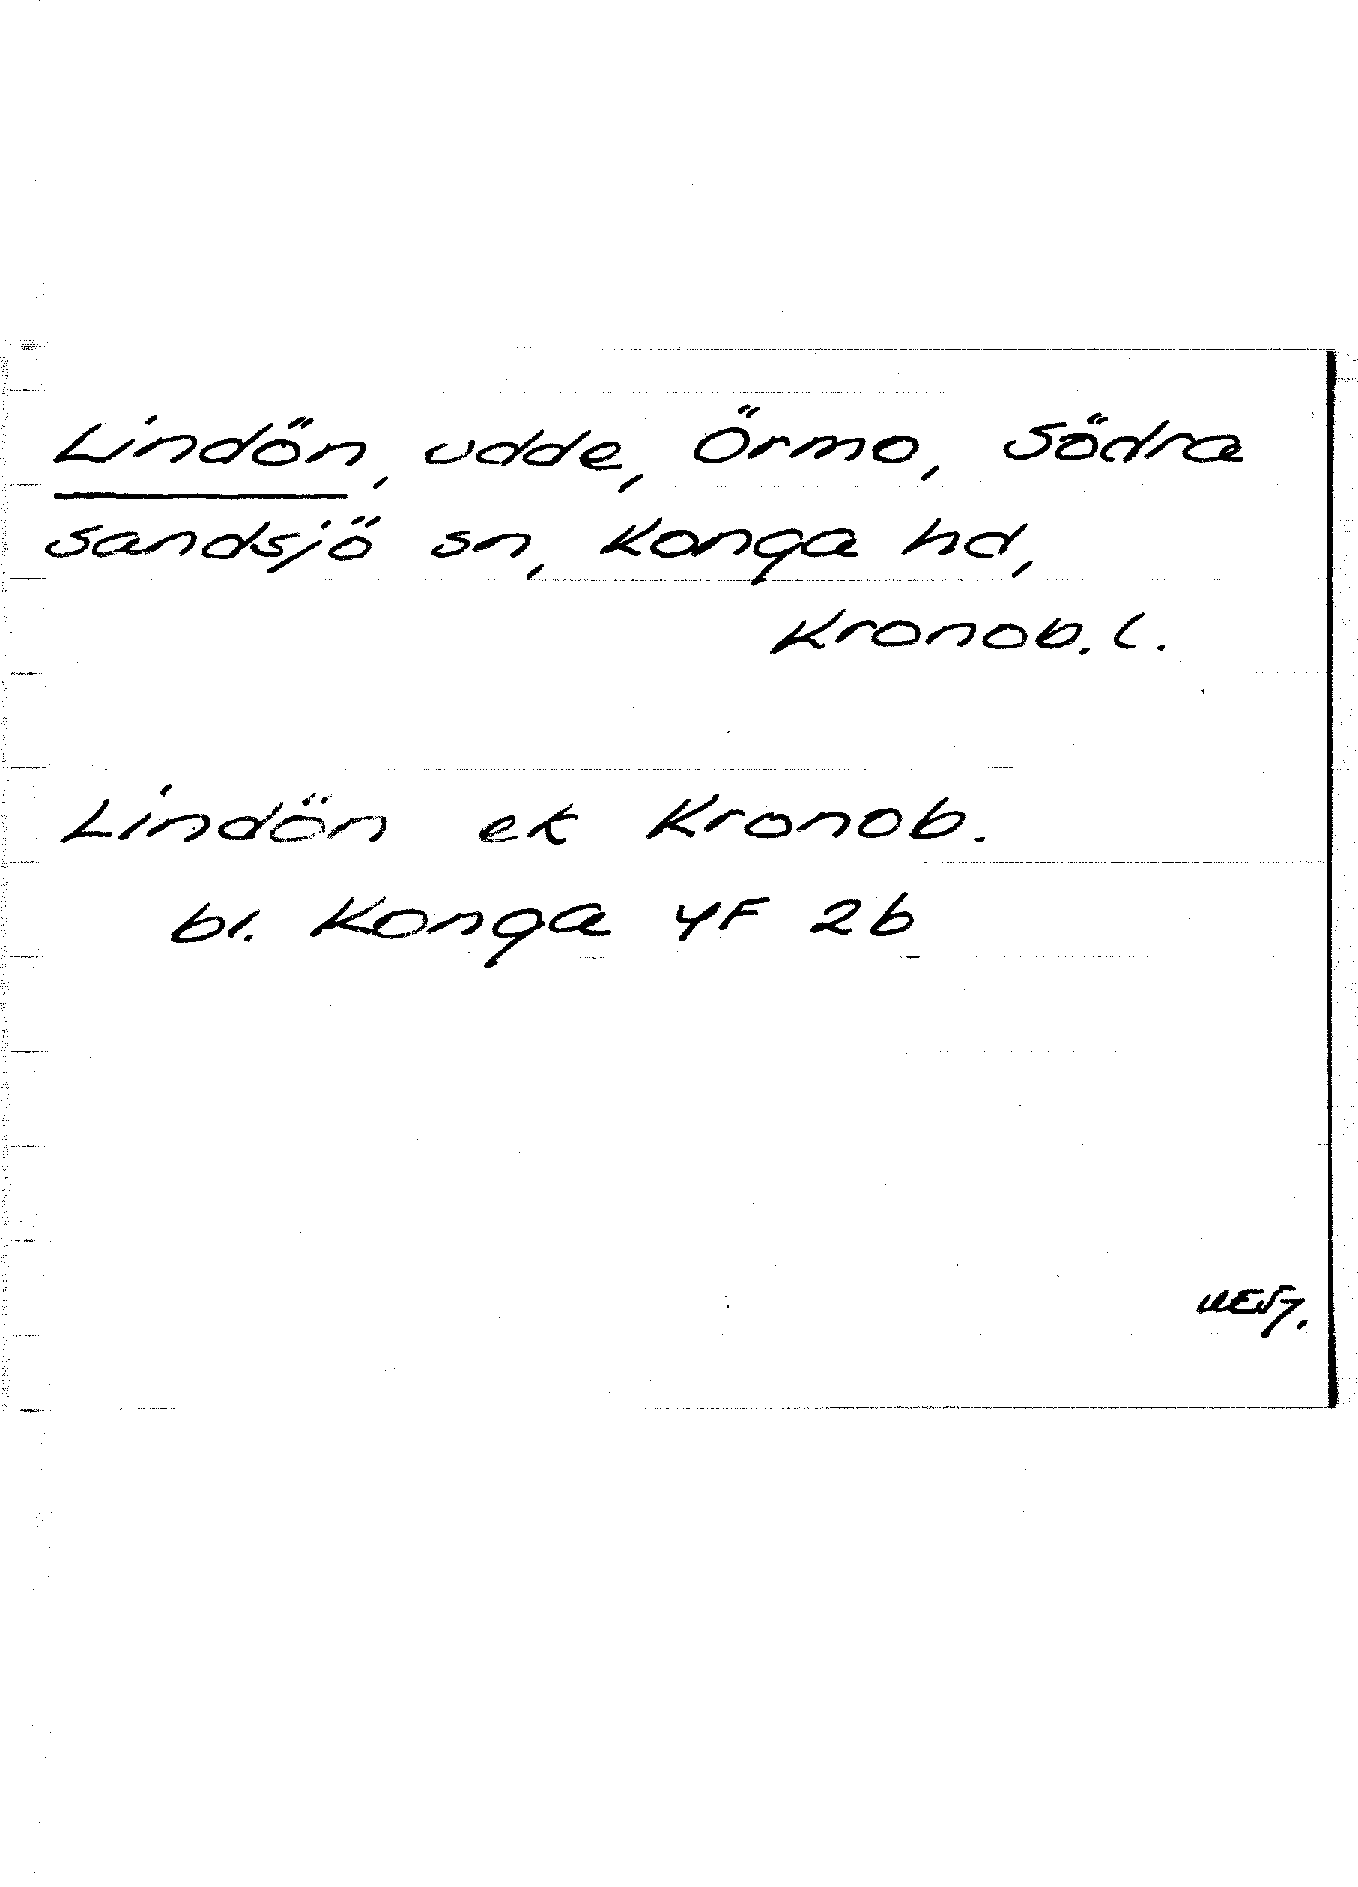 Lindön, udde, Örmo, Södra
Sandsjö sn, Konga hd,
Kronob. l.
Lindön ek Kronob.
bl. Konga 4F 2b